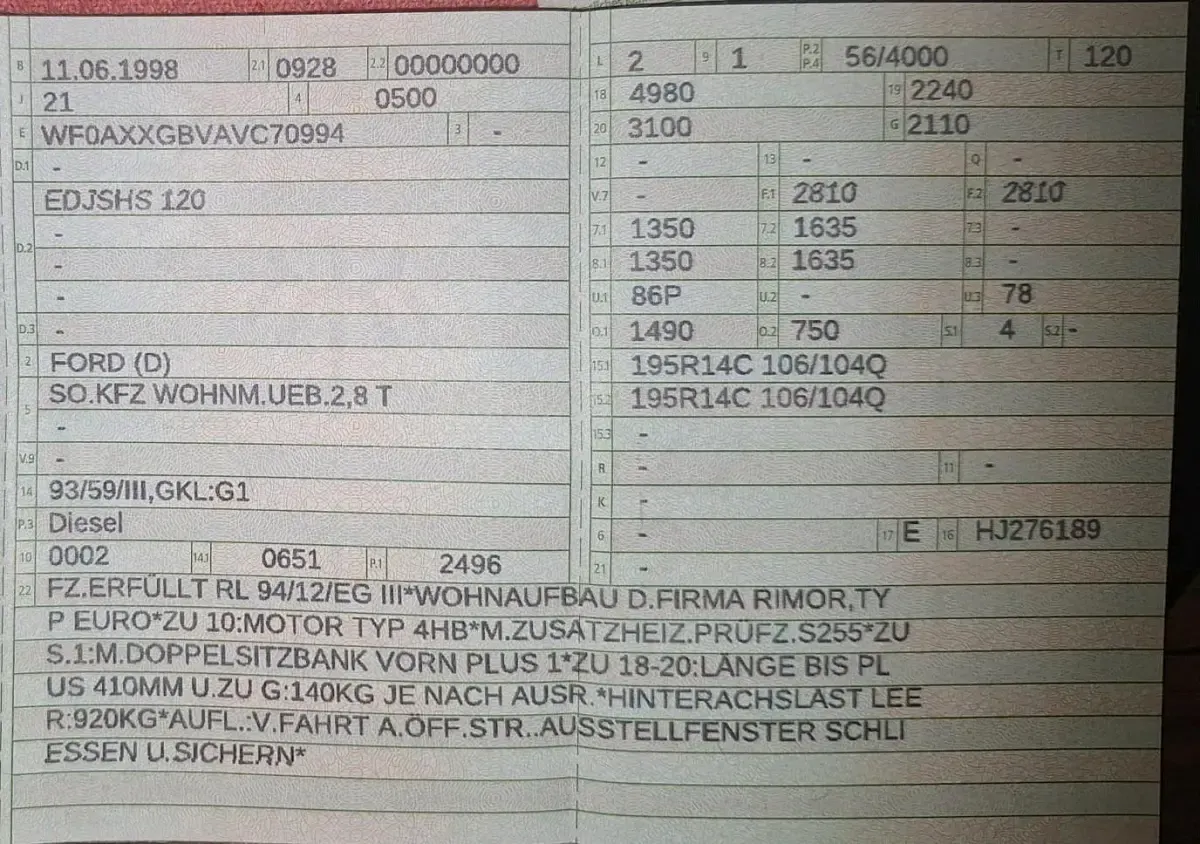 B 11.06.1998 2.1 0928 2.2 00000000
J 21 4 0500
E WF0AXXGBVAVC70994 3 -
D.1 -
D.2 EDJSHS 120
-
-
-
D.3 -
2 FORD (D)
5 SO.KFZ WOHNM.UEB.2,8 T
-
V.9 -
14 93/59/III,GKL:G1
P.3 Diesel
10 0002 14.1 0651 P.1 2496
L 2 9 1 P.2 P.4 56/4000 T 120
18 4980 19 2240
20 3100 G 2110
12 - 13 - Q -
V.7 - F.1 2810 F.2 2810
7.1 1350 7.2 1635 7.3 -
8.1 1350 8.2 1635 8.3 -
U.1 86P U.2 - U.3 78
O.1 1490 O.2 750 S.1 4 S.2 -
15.1 195R14C 106/104Q
15.2 195R14C 106/104Q
15.3 -
R - 11 -
K -
6 - 17 E 16 HJ276189
21 -
22 FZ.ERFÜLLT RL 94/12/EG III*WOHNAUFBAU D.FIRMA RIMOR,TY
P EURO*ZU 10:MOTOR TYP 4HB*M.ZUSATZHEIZ.PRÜFZ.S255*ZU
S.1:M.DOPPELSITZBANK VORN PLUS 1*ZU 18-20:LÄNGE BIS PL
US 410MM U.ZU G:140KG JE NACH AUSR.*HINTERACHSLAST LEE
R:920KG*AUFL.:V.FAHRT A.ÖFF.STR..AUSSTELLFENSTER SCHLI
ESSEN U.SICHERN*